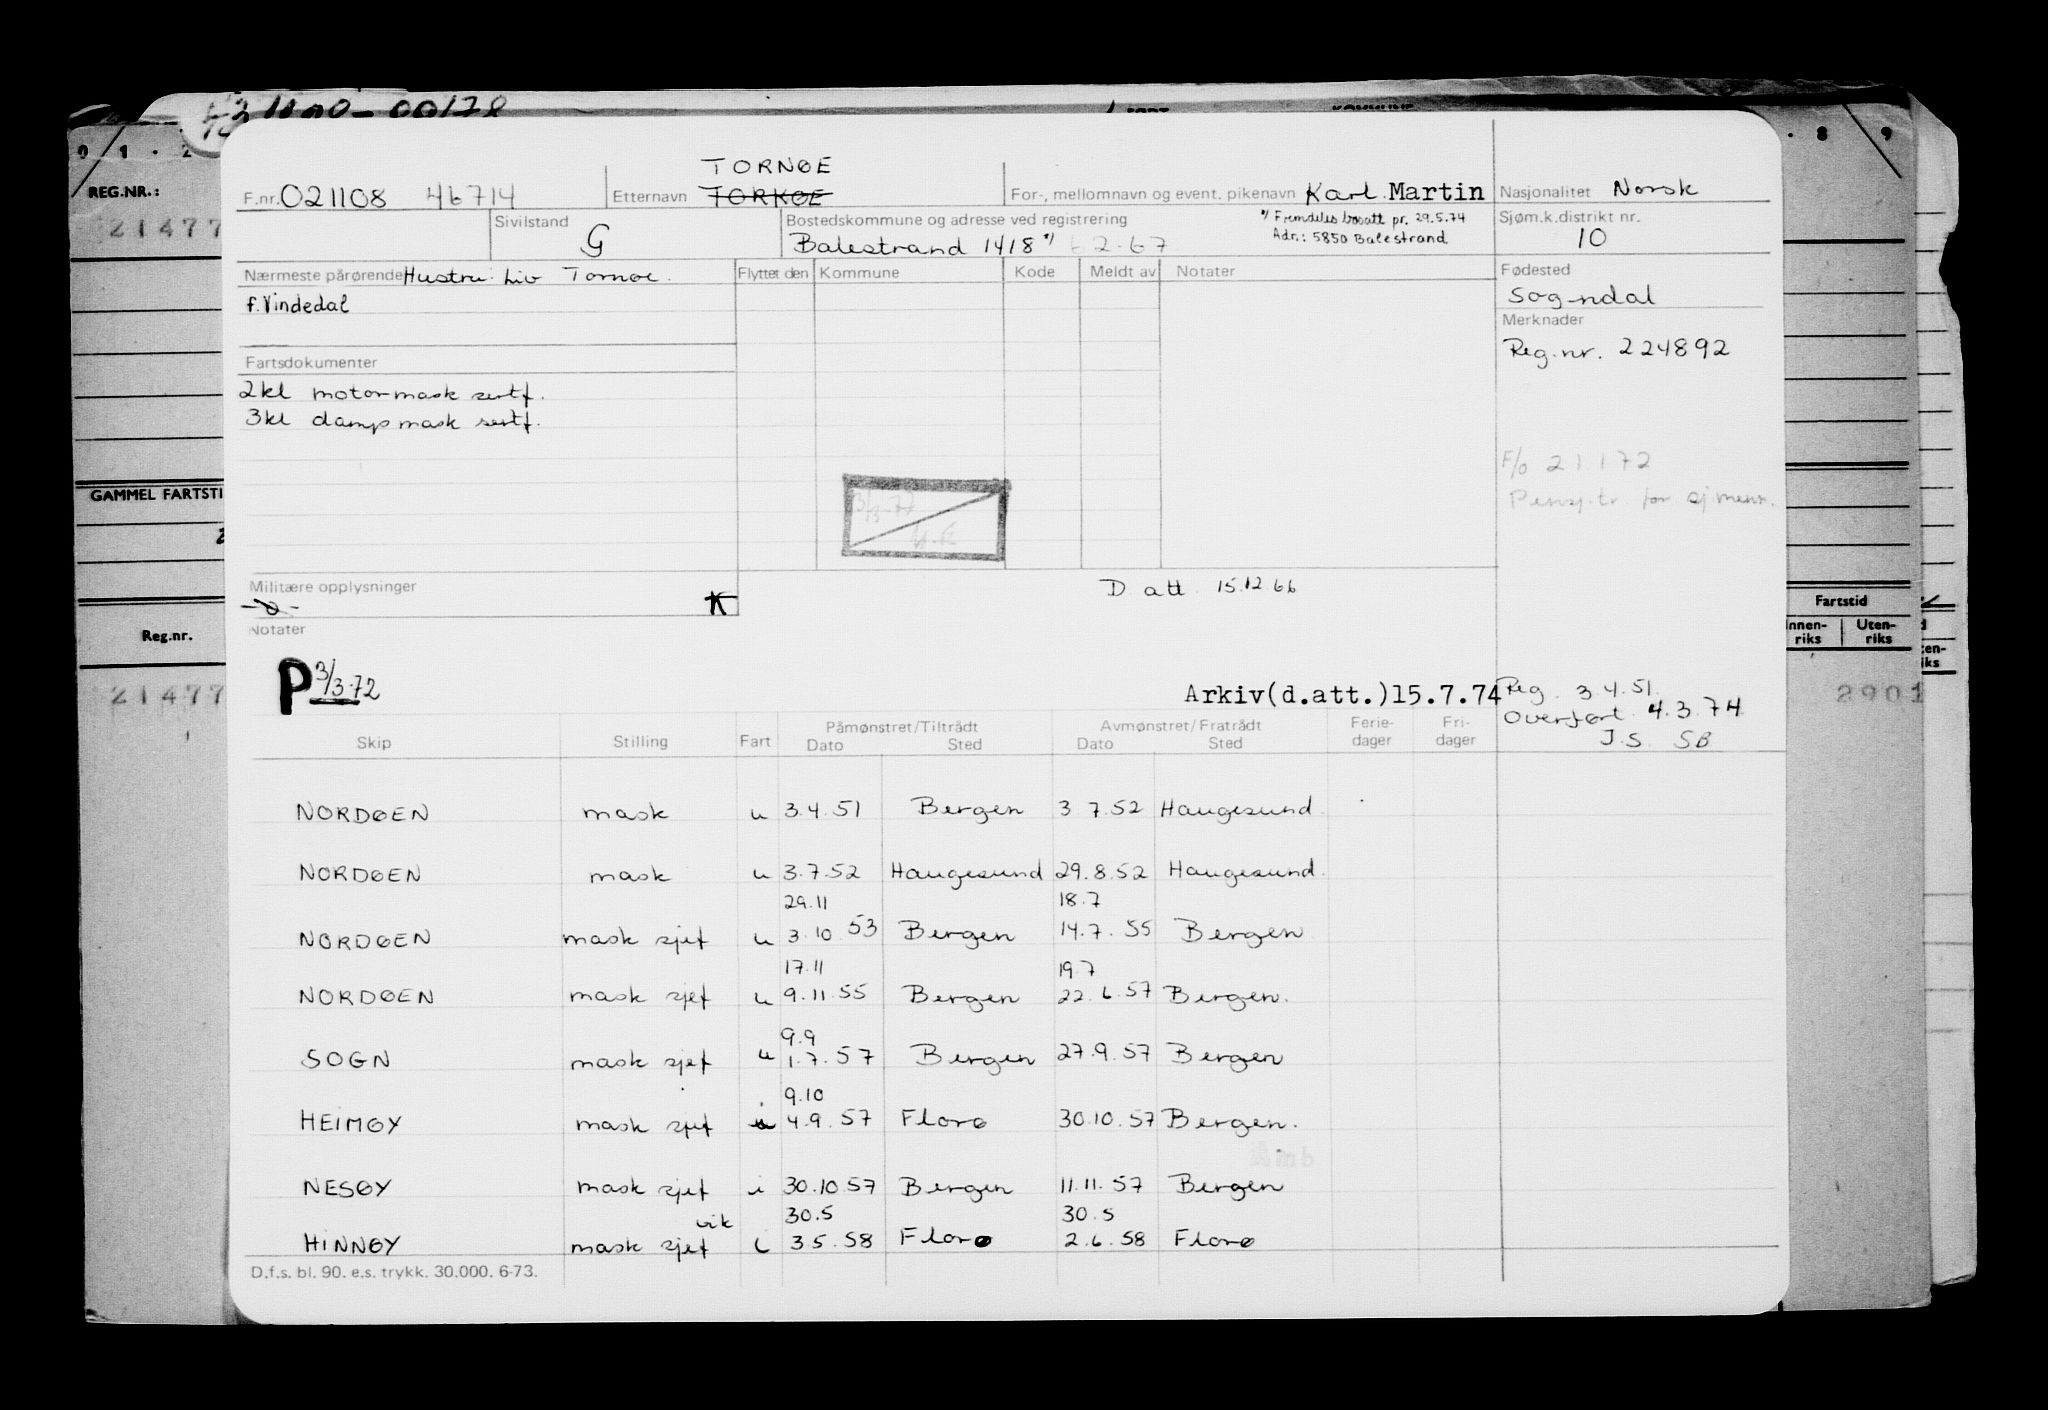 F.nr. 021108 46714
TORNØE
Etternavn TORKØE
For-, mellomnavn og event. pikenavn Karl Martin
Nasjonalitet Norsk
Sivilstand
G
Bostedskommune og adresse ved registrering
Balestrand 1418 *)
*) Fremdeles bosatt pr. 29.5.74
Adr.: 5850 Balestrand
Sjøm.k.distrikt nr.
10
Nærmeste pårørende Hustru: Liv Tornøe.
f. Vindedal
Flyttet den Kommune Kode Meldt av Notater
Fødested
Sogndal
Merknader
Reg.nr. 224892
Fartsdokumenter
2kl motormask sertf.
3kl dampmask sertf.
F/o 21172
GAMMEL FARTSTI
REG.NR.:
21477
Militære opplysninger
K
D att. 15.12.66
Notater
P 3/3-72
Arkiv(d.att.)15.7.74
Reg. 3.4.51.
Overført 4.3.74
J.S. SB
Reg.nr.
21477
Fartstid
Innen-riks Uten-riks
2901
Skip Stilling Fart Påmønstret/Tiltrådt Avmønstret/Fratrådt Ferie-dager Fri-dager
Dato Sted Dato Sted
NORDØEN mask u 3.4.51 Bergen 3 7.52 Haugesund.
NORDØEN mask u 3.7.52 Haugesund 29.8.52 Haugesund.
29.11 18.7
NORDØEN mask sjef u 3.10.53 Bergen 14.7.55 Bergen
17.11 19.7
NORDØEN mask sjef u 9.11.55 Bergen 22.6.57 Bergen.
9.9
SOGN mask sjef u 1.7.57 Bergen 27.9.57 Bergen
9.10
HEIMØY mask sjef i 4.9.57 Florø 30.10.57 Bergen.
NESØY mask sjef i 30.10.57 Bergen 11.11.57 Bergen
vik 30.5 30.5
HINNØY mask sjef i 3.5.58 Florø 2.6.58 Florø
D.f.s. bl. 90. e.s. trykk. 30.000. 6-73.